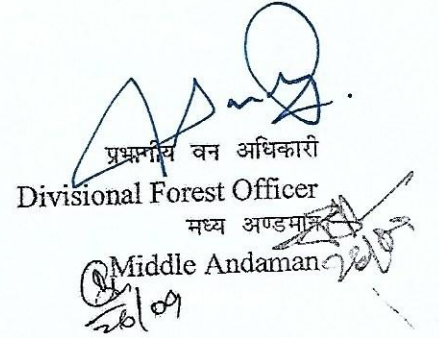 प्रभागीय वन अधिकारी
Divisional Forest Officer
मध्य अण्डमान
Middle Andaman
26/09